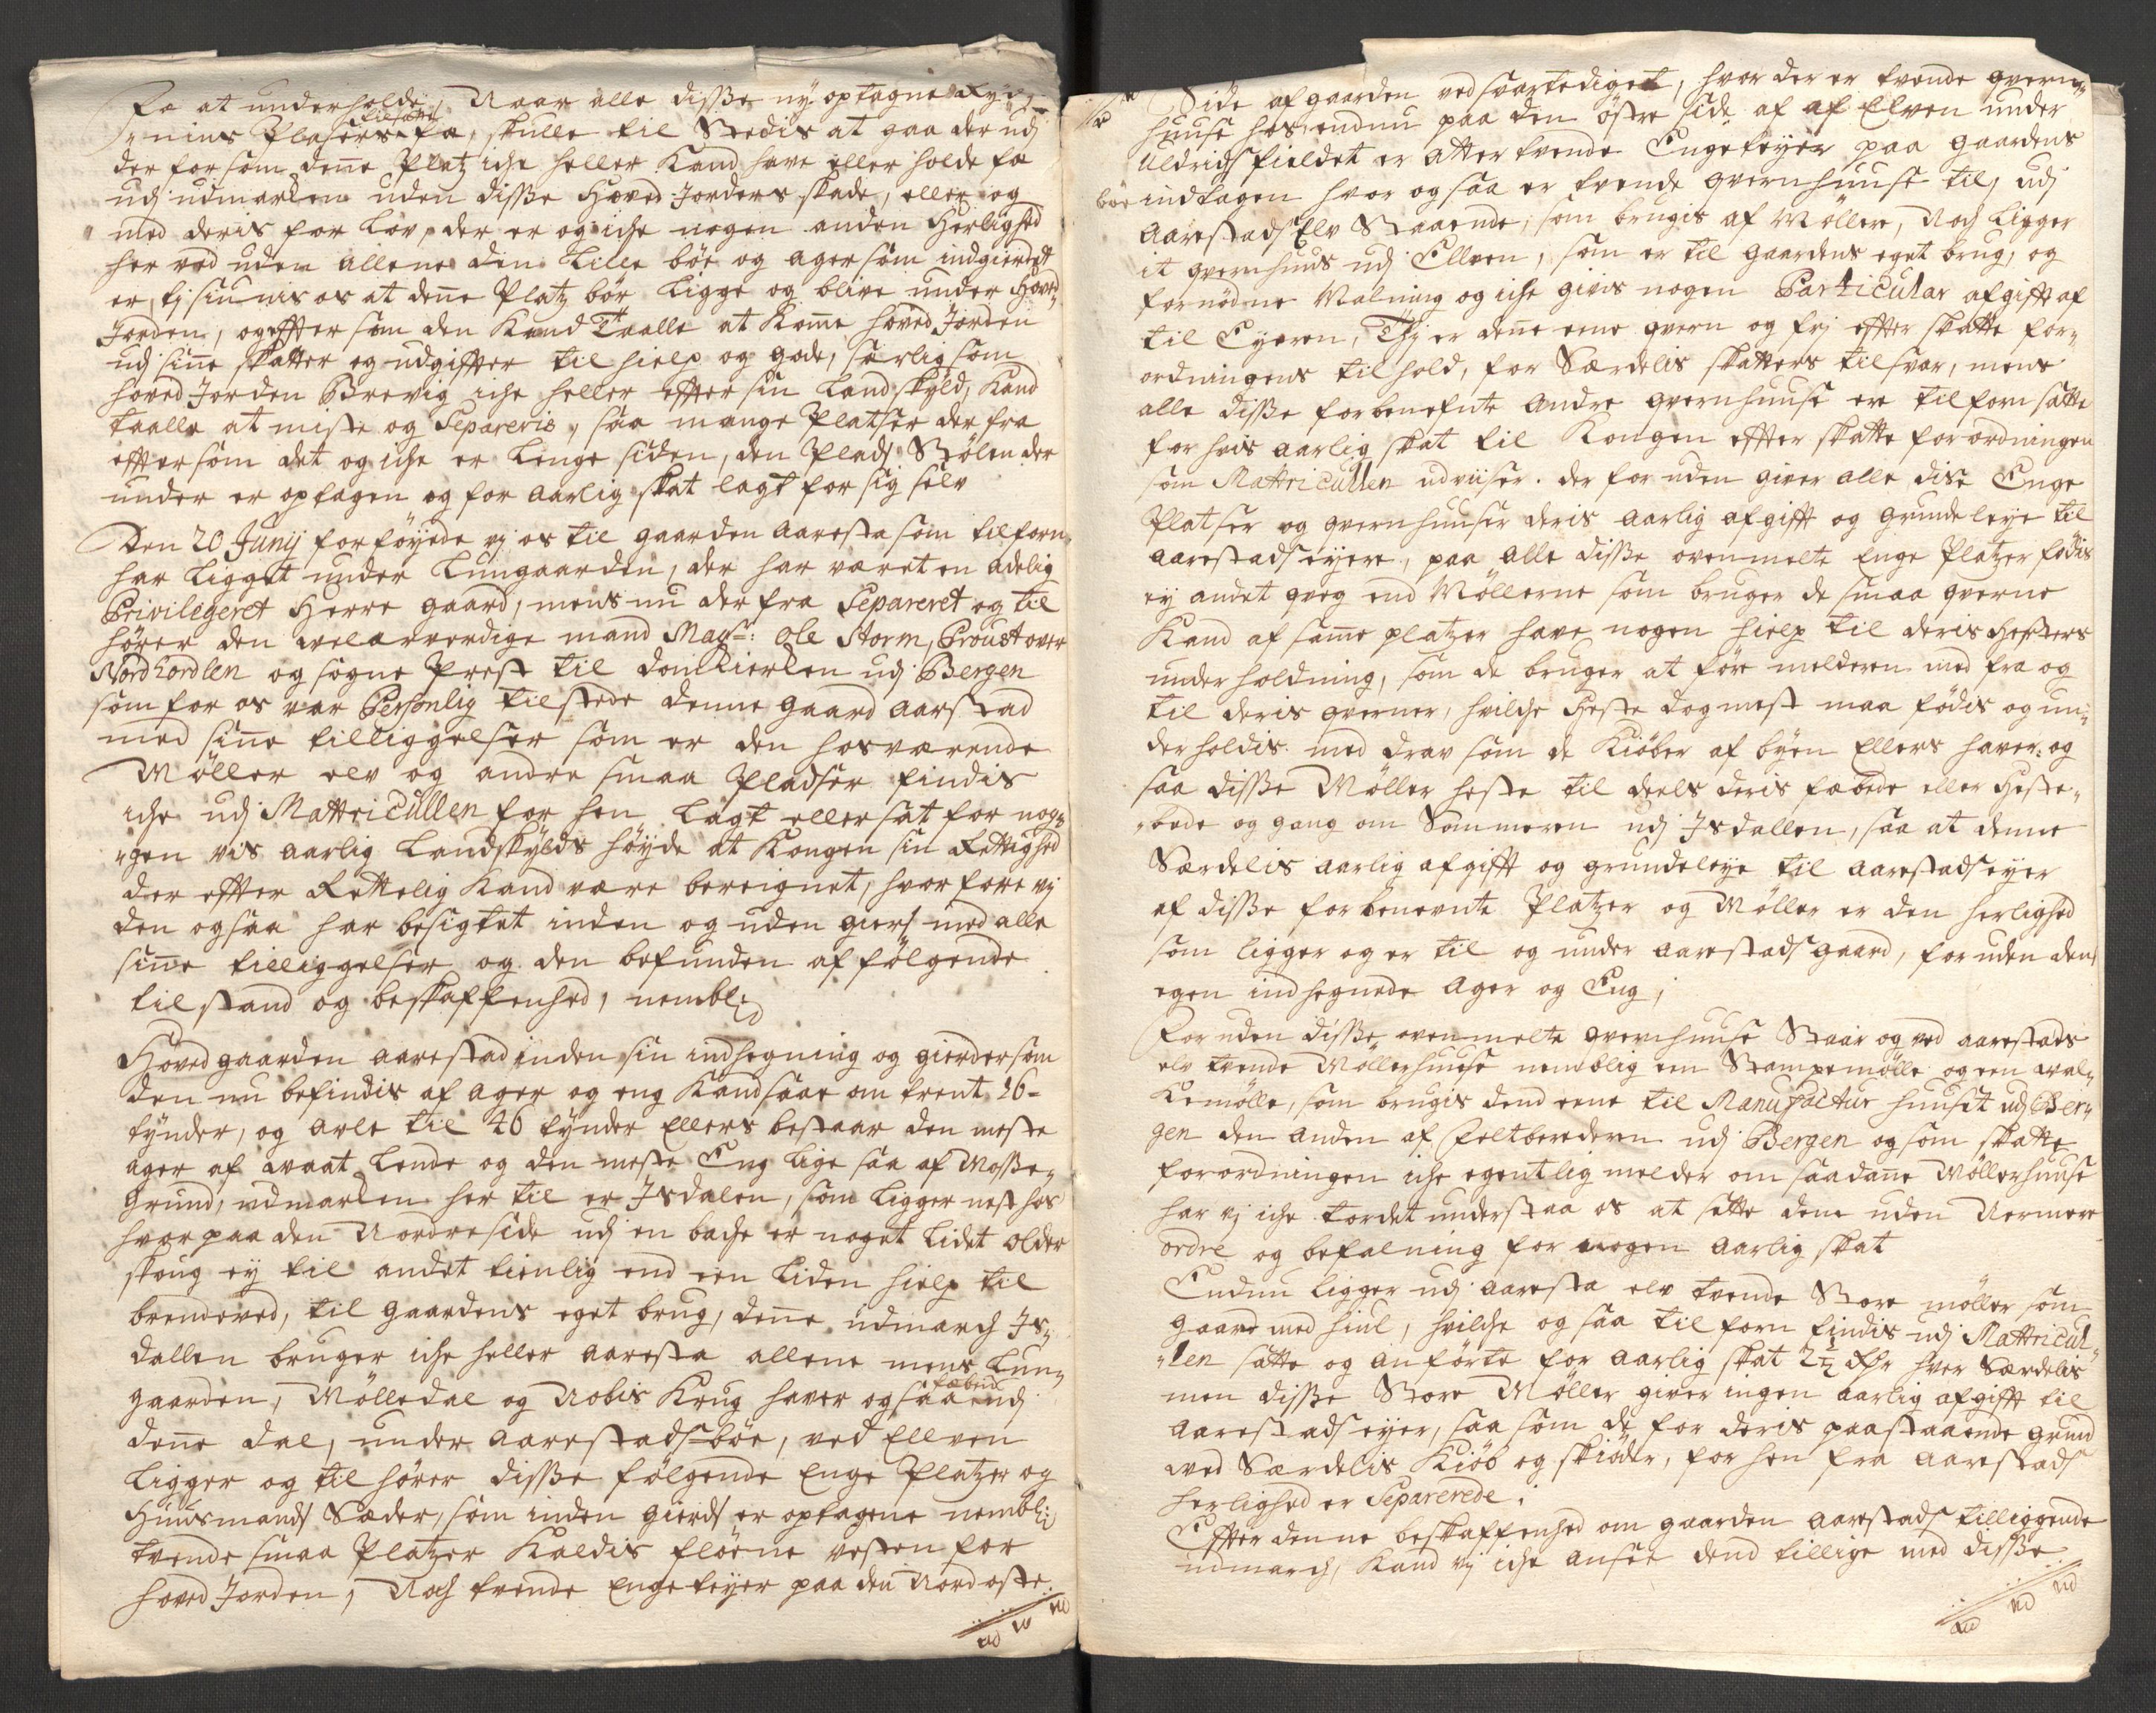 fæ at underholde, Naar alle disse ny optagne Ryd-
nins Plasers tilsatte fæ, skulle til Stedis at gaa der udj
der for som denne Platz iche heller kand have eller holde fæ
udj udmarken uden disse Hoved Jorders skade, eller og
med deris for Lov, der er og iche nogen anden Herlighed
her ved uden allene den Lille böe og ager som indgierdet
er, tj siunis os at denne Platz bör ligge og blive under Hoved
Jorden, og effter som den kand Taalle at komme hoved Jorden
udj sine skatter og udgiffter til hielp og gode, særlig som
hoved Jorden Brevig iche heller effter sin Landskyld, kand
taalle at miste og Separeris, saa mange Platser der fra
effter som det og iche er lenge siden, den Plads Stölen der
under er optagen og for aarlig skat lagt for sig selv
Den 20 Junij forföyede vj os til gaarden Aaresta som tilforn
har ligget under Lungaarden, der har været en adelig
Privilegeret Herre gaard, mens nu der fra Separeret og til
hörer den velærverdige mand Magr: Ole Storm, Proust over
Nordhordlen og sogne Prest til domkierken udj Bergen
som for os var Personlig tilstede denne gaard Aarstad
med sine tilliggelser som er den hosværende
Möller elv og andre smaa Pladser findis
iche udj Mattricullen for hen lagt eller sat for nog-
gen vis aarlig Landskylds höyde at Kongen sin Rettighed
der effter Rettelig kand være bereignet, hvor fore vj
den ogsaa har besigtet inden og uden giers med alle
sine tilliggelser og den befunden af fölgende
tilstand og beskaffenhed, nembl:
Hovedgaarden Aarestad inden sin indhegning og gierder som
den nu befindis af ager og eng kand saae omtrent 16-
tynder, og avle til 46 tynder Ellers bestaar den meste
ager af vaat Lende og den meste Eng lige saa af Mosse-
grund, udmarken her til er Isdalen, som ligger nest hos
hvor paa den Nordre side udj en backe er noget lidet older
skoug ey til andet tienlig end een liden hielp til
brendeved, til gaardens eget brug, denne udmarch Is-
dallen bruger iche heller Aaresta allene mens Lun-
gaarden, Mölledal og Nobis Krug haver og saa fæbeed udj
denne dal, under Aarestads böe, ved Ellven
ligger og tilhörer disse fölgende Enge Platzer og
Huusmands Sæder, som inden gierds er optagene nembl:
tvende smaa Platzer kaldis flöene vesten for
hoved Jorden, Noch tvende Engeteyer paa den Nordoste
Side af gaarden ved svartediget, hvor der er tvende qvern-
huuse hos, endnu paa den östre side af af Elven under
Uldrichsfieldet er atter tvende Engeteyer paa gaardens
böe indtagen hvor og saa er tvende qvernhuuse til, udj
Aarestads Elv Staaende, som brugis af Möllere, Noch ligger
it qvernhuus udj Ellven, som er til gaardens eget brug, og
fornödne Malning og iche givis nogen Particular afgifft af
til Eyeren, Thj er denne eene qvern og frj effter skatte for-
ordningens tilhold, for Særdelis skatters tilsvar, mens
alle disse forbenefnte andre qvernhuuse ere tilforn satte
for hvis aarlig skat til Kongen effter skatte forordningen
som Mattricullen udviiser. der foruden giver alle dise Enge
Platser og qvernhuuser deris aarlig afgifft og grundeleye til
Aarestads eyere, paa alle disse ovenmelte Enge Platzer födis
ey andet qveg end Möllerne som bruger de smaa qverne
kand af samme platzer have nogen hielp til deris Hesters
underholdning, som de bruger at före melderen med fra og
til deris qverner, hvilche Heste dog mest maa födis og un-
derholdis med drav som de kiöber af byen Ellers haver og
saa disse Möller heste til deels deris fæbede eller Heste-
bede og gang om Sommeren udj Isdallen, saa at denne
Særdelis aarlig afgifft og grundeleye til Aarestads eyer
af disse forbenevnte Platzer og Möller er den herlighed
som ligger og er til og under Aarestads gaard, foruden dens
egen indhegnede ager og Eng,
Foruden disse ovenmelte qvernhuuse Staar og ved Aarestads
elv tvende Möllerhuuse nemblig en Stampemölle og een val-
kemölle, som brugis dend eene til Manufactur huuset udj Ber-
gen den anden af feltberederen udj Bergen og som skatte
forordningen iche egentlig melder om saadane Möllerhuuse
har vj iche tordet understaa os at sette denne uden Nermere
ordre og befalning for nogen aarlig skat
Endnu ligger udj Aaresta elv tvende Store möller som
gaard med hiul, hvilche og saa tilforn findis udj Mattricul-
len satte og anförte for aarlig skat 2½ Rdr hver Særdelis
men disse Store Möller giver ingen aarlig afgifft til
Aarestads eyer, saa som de for deris paastaaende grund
ved Særdelis kiöb og skiöder, for hen fra Aarestads
herlighed er Separerede.
Effter denne beskaffenhed om gaarden Aarestads tilliggende
udmarch, kand vj iche ansee dend tillige med disse